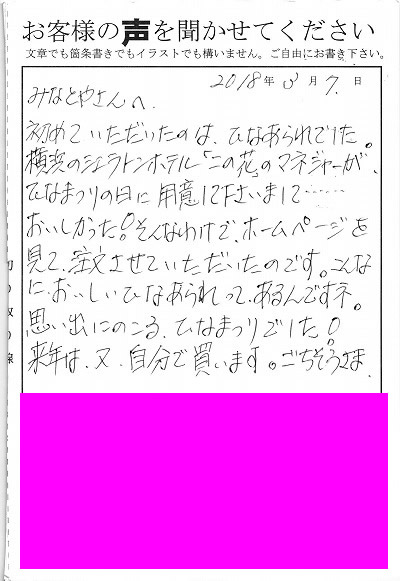 お客様の声を聞かせてください
文章でも箇条書きでもイラストでも構いません。ご自由にお書き下さい。
2018年 3月7.日
みなとやさんへ.
初めていただいたのは、ひなあられでした。
横浜のシェラトンホテル「この花」のマネジャーが、
ひなまつりの日に用意して下さいまして……
おいしかった!。そんなわけで、ホームページを
見て、注文させていただいたのです。こんな
に、おいしいひなあられって、あるんですネ。
思い出にのこる、ひなまつりでした!。
来年は、又、自分で買います。ごちそうさま.